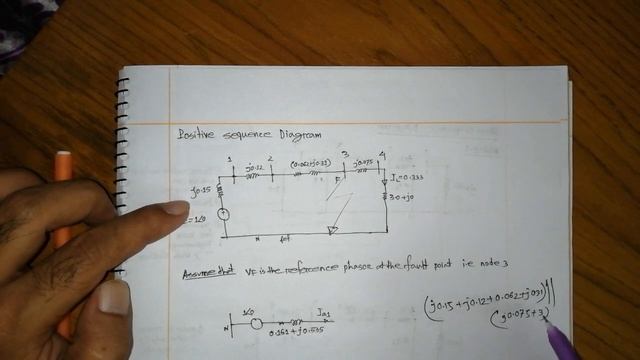 Positive sequence Diagram
1 2 3 4
j0.12 (0.062+j0.31) j0.075
F
j0.15
IL=0.333
3.0+j0
=1∠0
N
Assume that VF is the reference phasor at the fault point i.e node 3
(j0.15+j0.12+0.062+j0.31)||
(j0.075+3)
1∠0
Ia1
N
0.161+j0.535